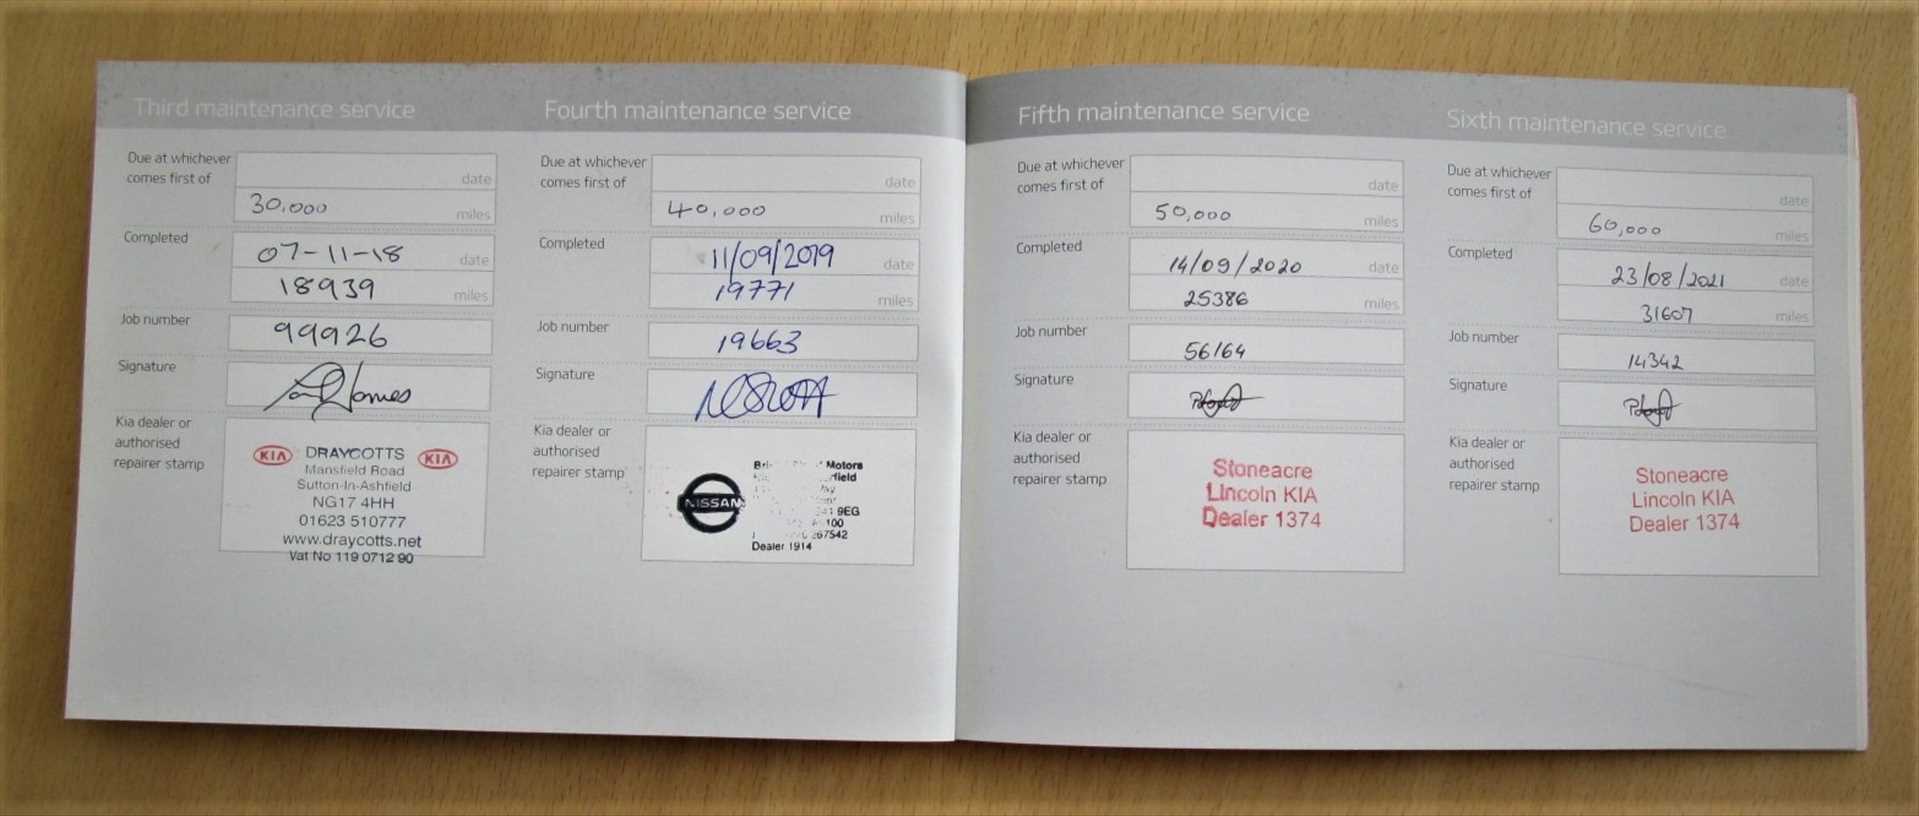 Third maintenance service
Due at whichever
comes first of
date
30,000 miles
Completed
07-11-18 date
18939 miles
Job number
99926
Signature
Kia dealer or
authorised
repairer stamp
KIA DRAYCOTTS KIA
Mansfield Road
Sutton-In-Ashfield
NG17 4HH
01623 510777
www.draycotts.net
Vat No 119 0712 90
Fourth maintenance service
Due at whichever
comes first of
date
40,000 miles
Completed
11/09/2019 date
19771 miles
Job number
19663
Signature
Kia dealer or
authorised
repairer stamp
NISSAN
Motors
9EG
100
267542
Dealer 1914
Fifth maintenance service
Due at whichever
comes first of
date
50,000 miles
Completed
14/09/2020 date
25386 miles
Job number
56164
Signature
Kia dealer or
authorised
repairer stamp
Stoneacre
Lincoln KIA
Dealer 1374
Sixth maintenance service
Due at whichever
comes first of
date
60,000 miles
Completed
23/08/2021 date
31607 miles
Job number
14342
Signature
Kia dealer or
authorised
repairer stamp
Stoneacre
Lincoln KIA
Dealer 1374